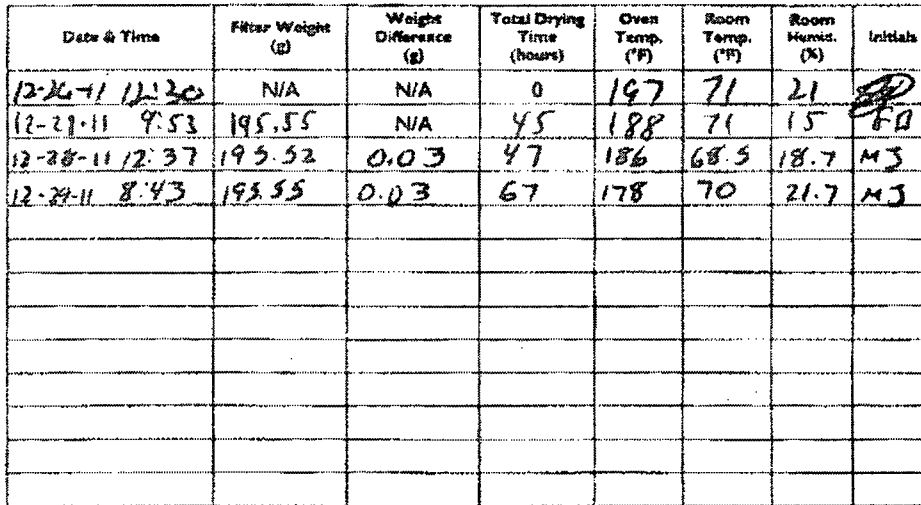 Date & Time Filter Weight (g) Weight Difference (g) Total Drying Time (hours) Oven Temp. (°F) Room Temp. (°F) Room Humid. (%) Initials
12-26-11 12:20 N/A N/A 0 197 71 21
12-28-11 9:53 195.55 N/A 45 188 71 15
12-28-11 12:37 195.52 0.03 47 186 68.5 18.7 MJ
12-29-11 8:43 195.55 0.03 67 178 70 21.7 MJ